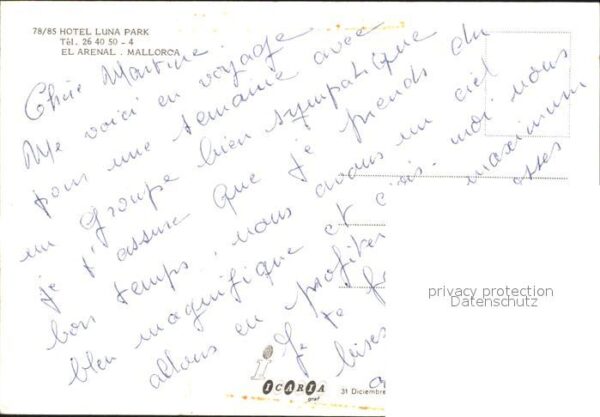 78/85 HOTEL LUNA PARK
Tèl. 26 40 50 - 4
EL ARENAL . MALLORCA
Chère Martine.
Me voici en voyage
pour une semaine avec
un groupe bien sympatique
je t'assure que je prends du
bon temps. nous avons un ciel
bleu magnifique et crois-moi nous
allons en profiter maximum
Je te
bises
privacy protection
Datenschutz
ICARIA
graf
31 Diciembre